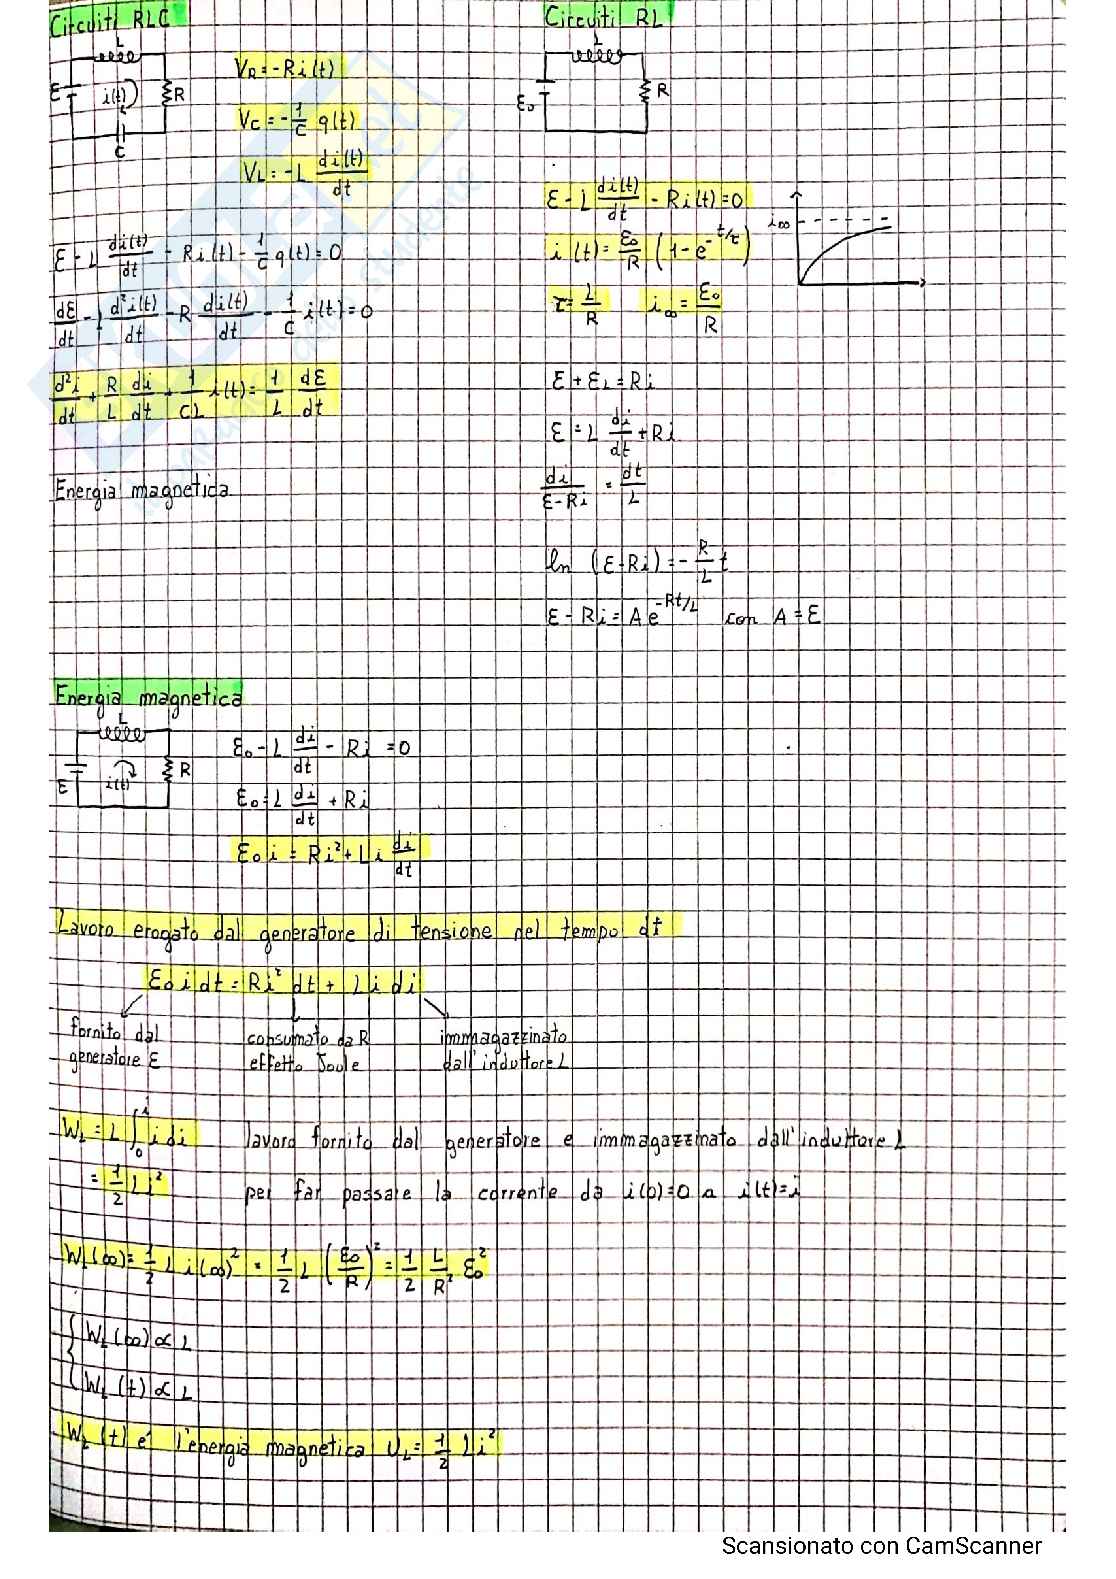 Circuiti RLC
L
ε
i(t)
R
C
V_R = -Ri(t)
V_C = -1/C q(t)
V_L = -L di(t)/dt
ε - L di(t)/dt - Ri(t) - 1/C q(t) = 0
dε/dt - L d²i(t)/dt - R di(t)/dt - 1/C i(t) = 0
d²i/dt + R/L di/dt + 1/CL i(t) = 1/L dε/dt
Energia magnetica
Circuiti RL
L
ε₀
R
ε - L di(t)/dt - Ri(t) = 0
i(t) = ε₀/R (1 - e^(-t/τ))
τ = L/R i∞ = ε₀/R
i∞
ε + ε_L = Ri
ε = L di/dt + Ri
di/(ε - Ri) = dt/L
ln (ε - Ri) = -R/L t
ε - Ri = A e^(-Rt/L) con A = ε
Energia magnetica
L
ε
i(t)
R
ε₀ - L di/dt - Ri = 0
ε₀ = L di/dt + Ri
ε₀ i = Ri² + Li di/dt
Lavoro erogato dal generatore di tensione nel tempo dt
ε₀ i dt = Ri² dt + L i di
fornito dal
generatore ε
consumato da R
effetto Joule
immagazzinato
dall'induttore L
W_L = L ∫₀ⁱ i di lavoro fornito dal generatore e immagazzinato dall'induttore L
= 1/2 Li² per far passare la corrente da i(0)=0 a i(t)=i
W_L(∞) = 1/2 L i(∞)² = 1/2 L (ε₀/R)² = 1/2 L/R² ε₀²
{ W_L(∞) ∝ L
W_L(t) ∝ L
W_L(t) e' l'energia magnetica U_L = 1/2 Li²
Scansionato con CamScanner